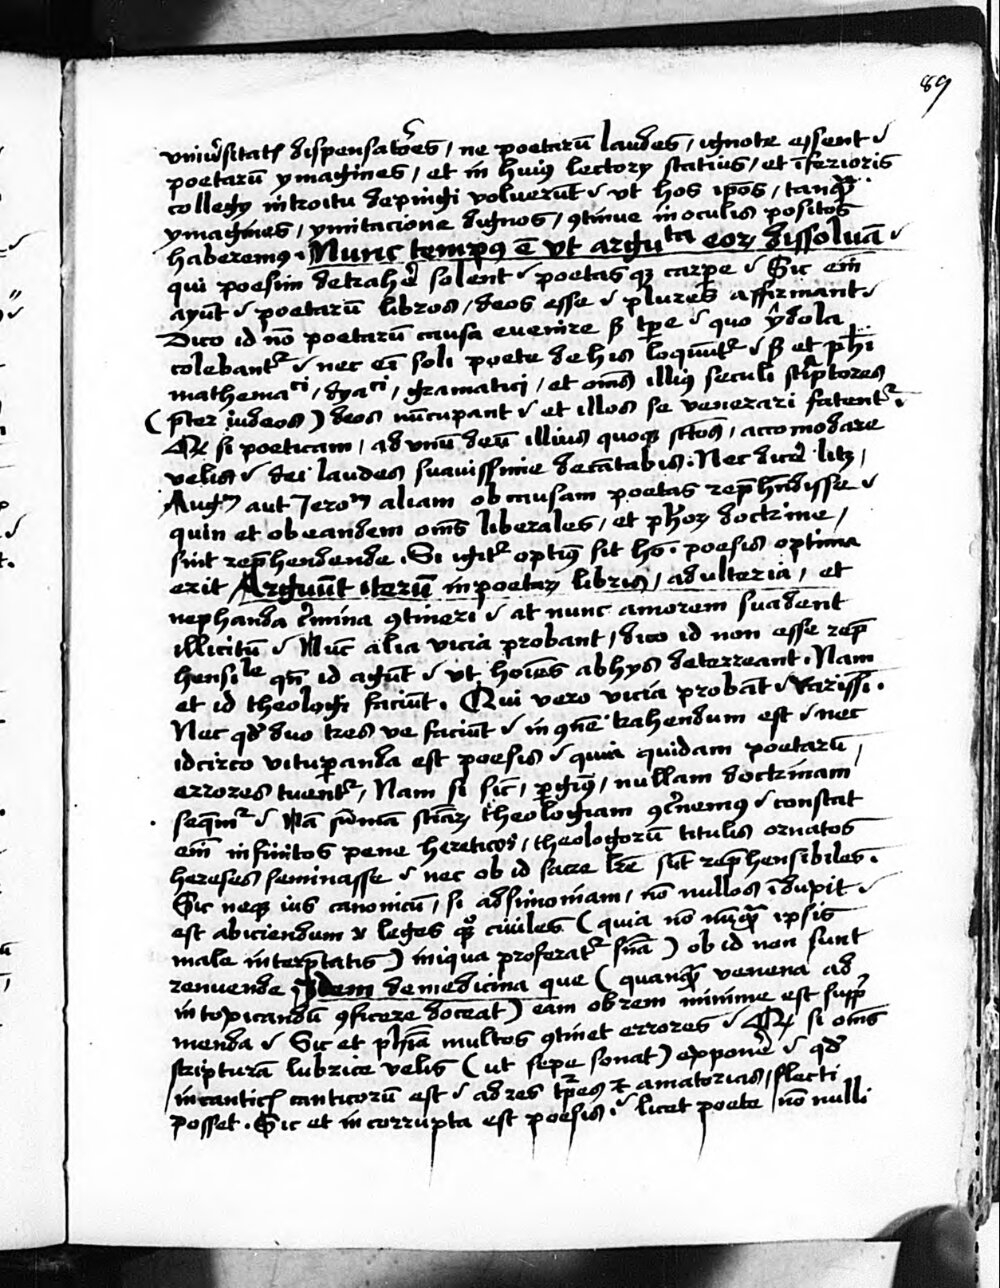 89
uniũsitatꝭ dispensatões / ne poetarũ laudes / ignote essent
poetarũ ymagines / et in huiꝰ lectorÿ statius / et ĩferioris
collegÿ introitu depingi voluerũt vt hos ip̃os / tanqᷓ
ymagines / ymitacione dignos / ꝯtinue in oculis positos
haberemꝰ. Nunc tempꝰ ē vt argu^ta eoꝝ dissoluã
qui poesim detrahẽ solent poetas qꝫ carpe Sic em̃
ayũt poetarũ libros / deos esse plures affirmant
Dico id nõ poetarũ causa evenire sꝫ tp̃e quo ydola
colebantᷣ nec eĩ soli poete de his loquũtᷣ sꝫ et ph̃i
mathema^ci / dya^ci / gramatici / et om̃s illiꝰ seculi scͥptores
(p̃ter iudeos) deos nũcupant et illos se venerari fatentᷣ.
Qꝫ si poeticam / ad vnũ deũ illius quoqꝫ sc̃tos / accomodare
velis dei laudes suavissime decãtabis. Nec dicẽ litꝫ /
Augꝰ aut Jeroꝰ aliam ob causam poetas rep̃hẽdisse
quin et ob eandem om̃s liberales / et ph̃oꝝ doctrine /
sint rep̃hendende. Si igitᷣ optimꝰ sit hõ. poesis optima
erit Arguũt iterũ in poetaꝝ libris / adulteria / et
nephanda cͥmina ꝯtineri at nunc amorem suadent
illicitũ Nũc alia vicia probant / dico id non esse rep̃
hensi^le qñ id agũt vt hoĩes ab hys deterreant. Nam
et id theologi faciũt. Qui vero vicia probãt rarissĩ.
Nec qđ duo tres ve faciũt in ꝯñe trahendum est nec
idcirco vituꝑanda est poesis quia quidam poetarũ /
errores tuentᷣ / Nam si sic̃ / ꝑgimꝰ / nullam doctrinam
seqͥmᷣ Nã sũmã sciãꝝ theologiam ꝯcͥnemꝰ constat
em̃ infinitos pene hereticos / theologorũ titulis ornatos
hereses seminasse nec ob id sacre lr̃e sũt rep̃hensibiles.
Sic neqꝫ ius canonicũ / si ad simoniam / nõ nullos ĩduxit
est abiciendum leges qꝫ civiles (quia nõ nũqᷓ ipsis
male interp̃tatis) iniqua proferatᷣ sñia) ob id non sunt
renuende Idem de medicina que (quanqᷓ venena ad
intoxicandũ ꝯficere doceat) eam ob rem minime est supp̃
menda Sic et ph̃ia multos ꝯtinet errores Qꝫ si om̃s
scripturã lubrice velis (ut sepe sonat) exponẽ qđ
in canticꝭ canticorũ est ad res tp̃res et amatorias / flecti
posset. Sic et incorrupta est poesis. licet poete nõ nulli